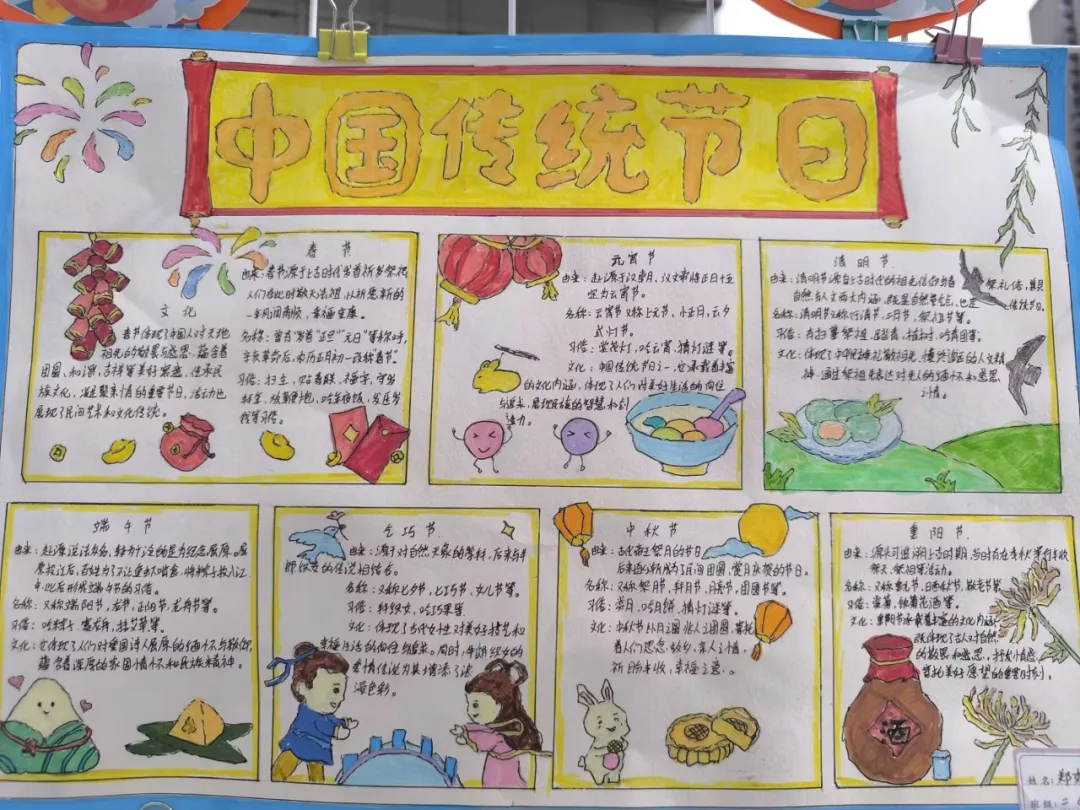 中国传统节日
春节
由来：春节源于上古时代岁首祈岁祭祀
人们在此时敬天法祖，以祈愿新的
一年风调雨顺，幸福安康。
名称：曾有"岁首""正旦""元日"等称呼，
辛亥革命后，农历正月初一改称"春节"。
习俗：扫尘，贴春联、福字，守岁
拜年，放鞭炮，吃年夜饭，发压岁
钱等习俗。
文化
春节体现了中国人对天地
祖先的敬畏与感恩，蕴含着
团圆、和谐，吉祥等美好寓意，传承民
族文化，凝聚亲情的重要节日，活动也
展现了民间艺术和文化传统。
元宵节
由来：起源于汉朝，汉文帝将正月十五
定为元宵节。
名称：元宵节又称上元节，小正月，元夕
或灯节。
习俗：赏花灯，吃元宵，猜灯谜等。
文化：中国传统节日之一，它承载着丰富
的文化内涵，体现了人们对美好生活的向往
与追求，展现民族的智慧和创
造力。
清明节
由来：清明节源自上古时代的祖先信仰与春
祭礼俗，兼具
自然与人文两大内涵，既是自然节气点，也是
传统节日。
名称：清明节又称行清节，三月节，祭祖节等。
习俗：有扫墓祭祖，踏青，植树，吃青团等。
文化：体现了中华民族礼敬祖先，慎终追远的人文精
神，通过祭祖来表达对先人的缅怀和感恩
之情。
端午节
由来：起源说法众多，较为广泛的是为纪念屈原。屈
原投江后，百姓为了不让鱼虾啃食，将粽子投入江
中，此后形成端午节的习俗。
名称：又称端阳节，龙节，正阳节，龙舟节等。
习俗：吃粽子，赛龙舟，挂艾草等。
文化：它体现了人们对爱国诗人屈原的缅怀与敬仰，
蕴含着深厚的家国情怀和民族精神。
乞巧节
由来：源于对自然天象的崇拜，后来与牛
郎织女的传说相结合。
名称：又称七夕节，七巧节，女儿节等。
习俗：拜织女，吃巧果等
文化：体现了古代女性对美好技艺和
幸福生活的向往与追求。同时，牛郎织女的
爱情传说为其增添了浪
漫色彩。
中秋节
由来：古代帝王祭月的节日
后来逐渐形成为了民间团圆、赏月庆贺的节日。
名称：又称祭月节，拜月节，月亮节，团圆节等。
习俗：赏月，吃月饼，猜灯谜等。
文化：中秋节以月之圆兆人之团圆，寄托
着人们思念故乡，亲人之情，
祈盼丰收，幸福之意。
重阳节
由来：源头可追溯上古时期，当时有在季秋举行丰收
祭天、祭祖等活动。
名称：又称重九节，日秋节，敬老节等。
习俗：登高，饮菊花酒等。
文化：重阳节承载着丰富的文化内涵，
既体现了古人对自然
的敬畏和感恩，
寄托美好愿望的重要时刻。
酒
姓名：
班级：